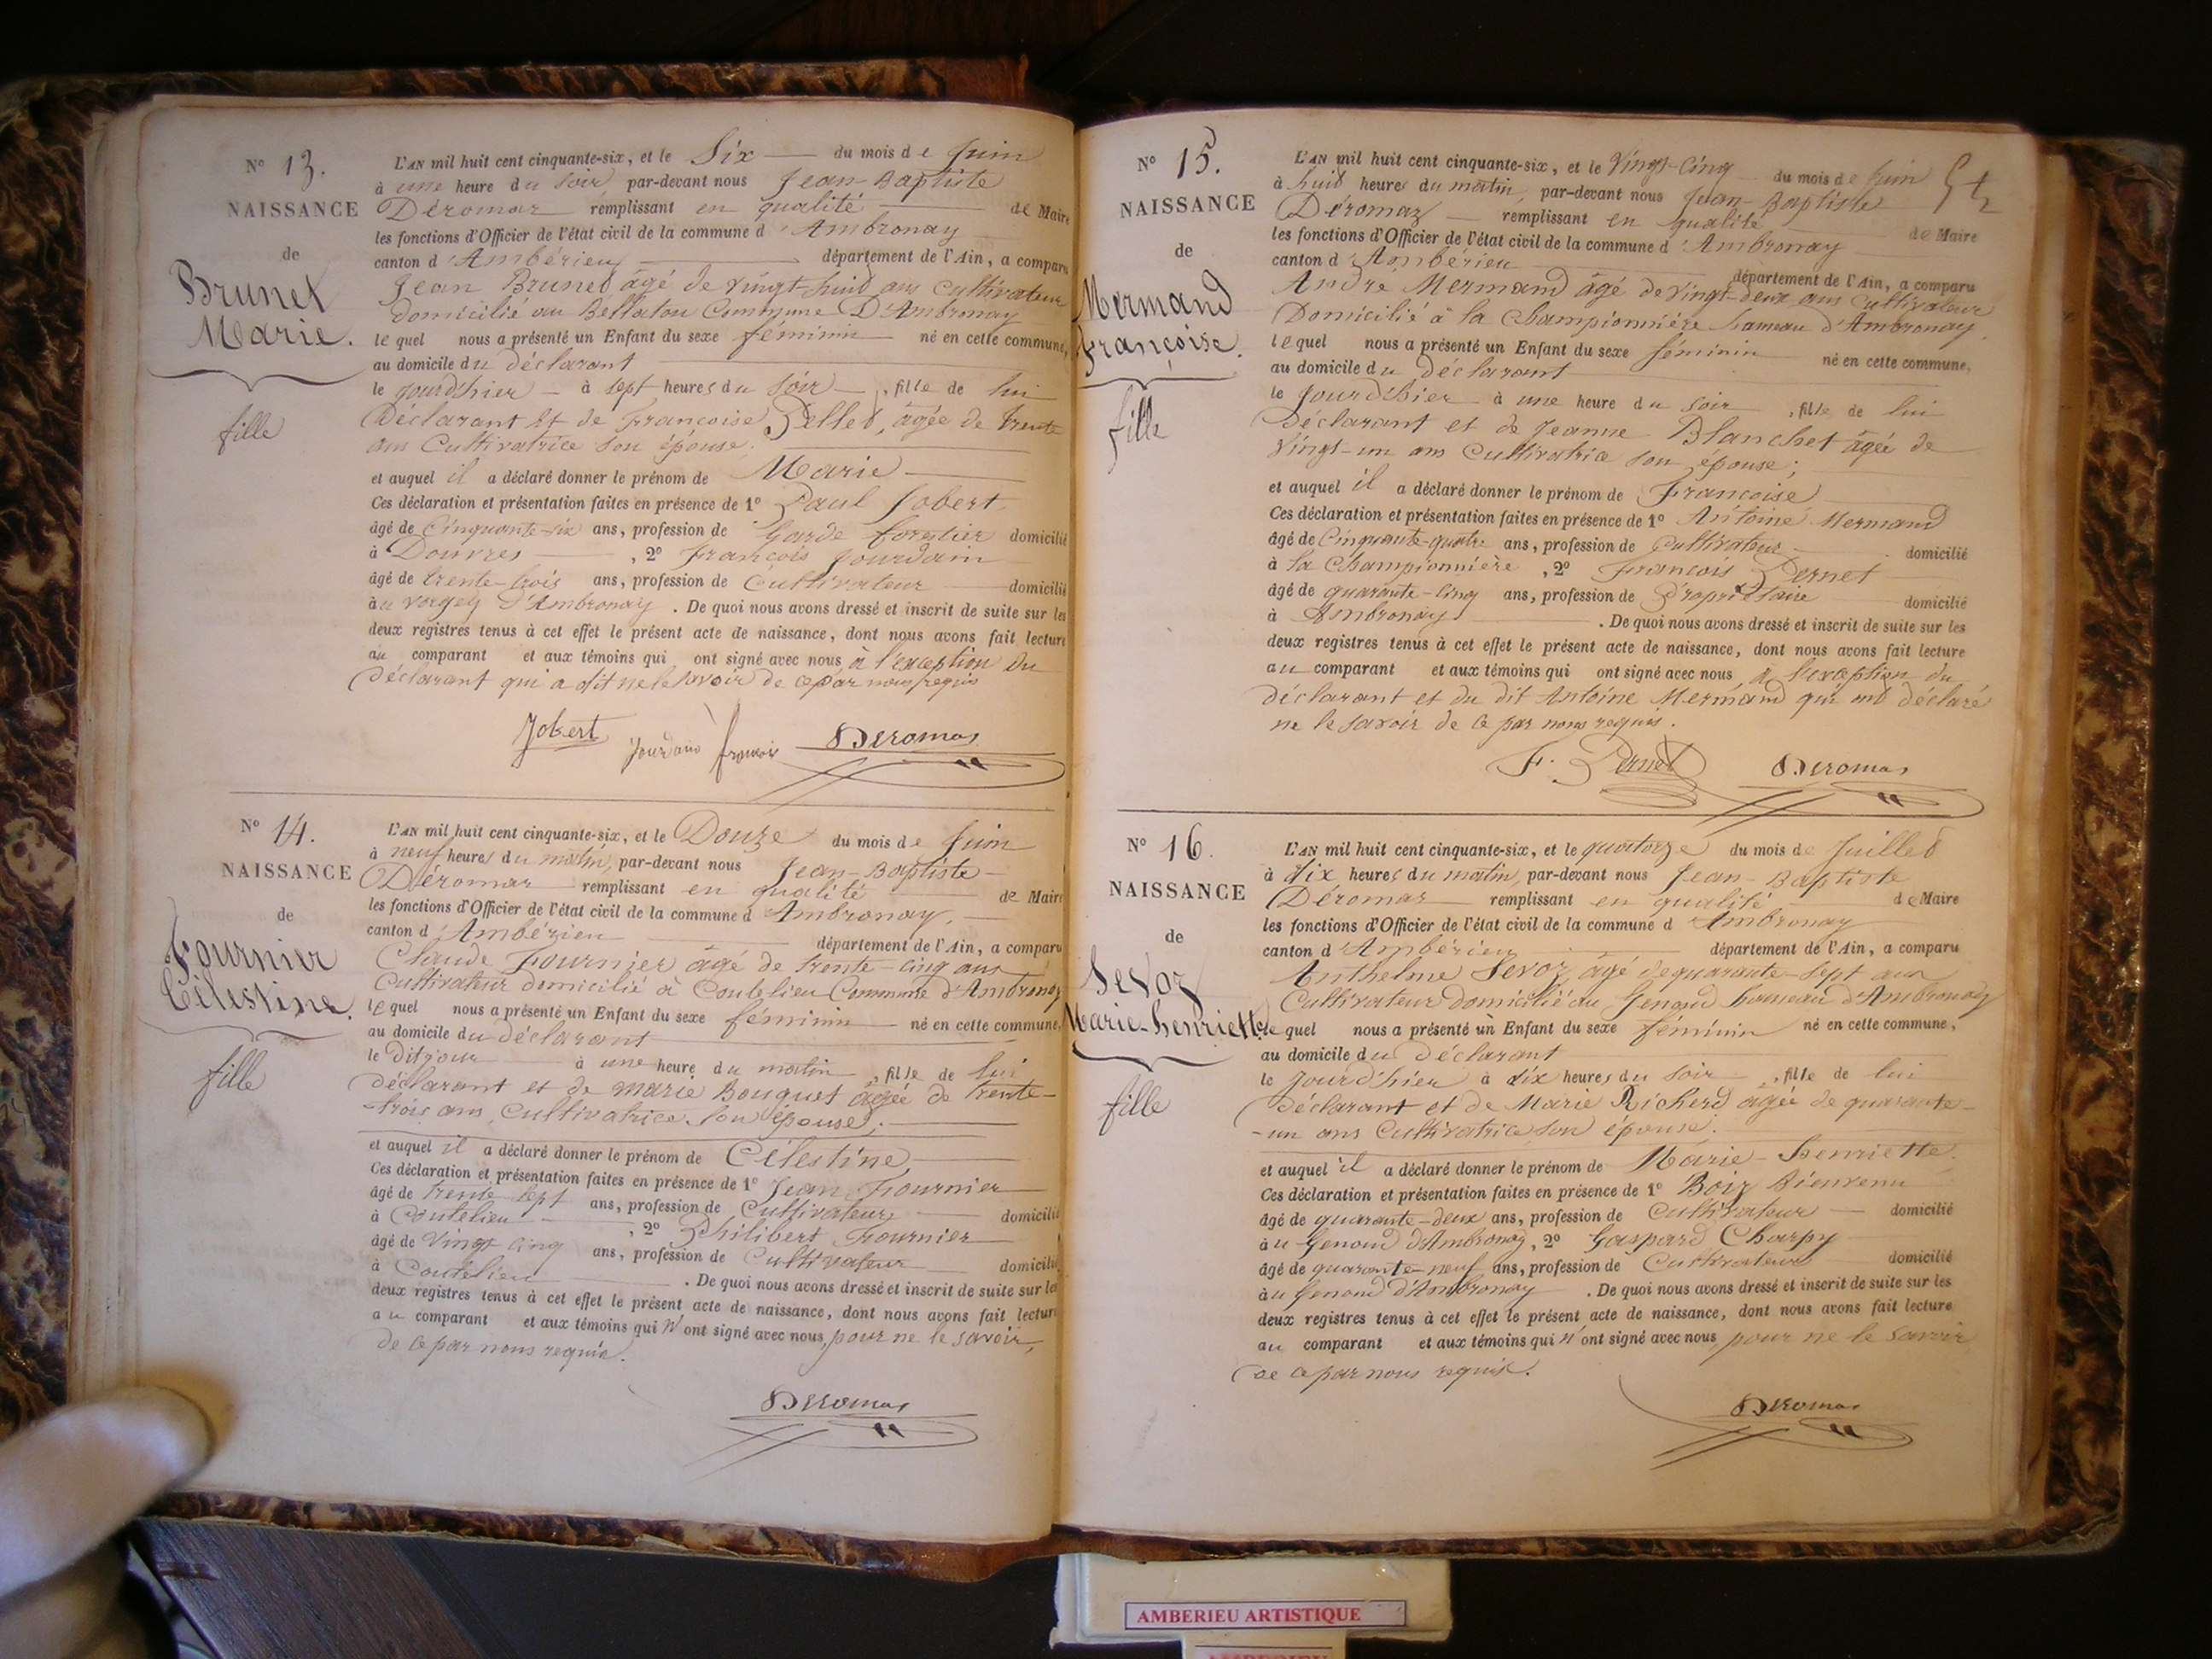 N° 13.
NAISSANCE
de
Brunet
Marie.
fille
L'AN mil huit cent cinquante-six, et le Six du mois de Juin
à une heure du soir, par-devant nous Jean-Baptiste
Déromas remplissant en qualité de Maire
les fonctions d'Officier de l'état civil de la commune d'Ambronay
canton d'Ambérieu département de l'Ain, a comparu
Jean Brunet âgé de vingt-huit ans Cultivateur
domicilié au Bellaton Commune D'Ambronay
lequel nous a présenté un Enfant du sexe féminin né en cette commune,
au domicile du déclarant
le jourd'hier à sept heures du soir, fille de lui
Déclarant et de Françoise Pellet, âgée de trente
ans Cultivatrice son épouse.
et auquel il a déclaré donner le prénom de Marie
Ces déclaration et présentation faites en présence de 1° Paul Jobert
âgé de Cinquante-six ans, profession de Garde forestier domicilié
à Douvres, 2° François Jourdain
âgé de trente-trois ans, profession de Cultivateur domicilié
au D'Ambronay. De quoi nous avons dressé et inscrit de suite sur les
deux registres tenus à cet effet le présent acte de naissance, dont nous avons fait lecture
au comparant et aux témoins qui ont signé avec nous à l'exception du
Déclarant qui a dit ne le savoir de ce par nous requis
Jobert Jourdain françois Deromas
N° 14.
NAISSANCE
de
Fournier
Célestine.
fille
L'AN mil huit cent cinquante-six, et le Douze du mois de Juin
à neuf heures du matin, par-devant nous Jean-Baptiste
Déromas remplissant en qualité de Maire
les fonctions d'Officier de l'état civil de la commune d'Ambronay,
canton d'Ambérieu département de l'Ain, a comparu
Claude Fournier âgé de trente-cinq ans
Cultivateur domicilié à Coutelieu Commune d'Ambronay
lequel nous a présenté un Enfant du sexe féminin né en cette commune,
au domicile du déclarant
le dit jour à une heure du matin, fille de lui
déclarant et de marie Bouquet âgée de trente-
-trois ans, Cultivatrice son épouse;
et auquel il a déclaré donner le prénom de Célestine
Ces déclaration et présentation faites en présence de 1° Jean Fournier
âgé de trente sept ans, profession de Cultivateur, domicilié
à Coutelieu, 2° Philibert Fournier
âgé de Vingt cinq ans, profession de Cultivateur domicilié
à Coutelieu. De quoi nous avons dressé et inscrit de suite sur les
deux registres tenus à cet effet le présent acte de naissance, dont nous avons fait lecture
au comparant et aux témoins qui n'ont signé avec nous, pour ne le savoir,
de ce par nous requis.
Deromas
N° 15.
NAISSANCE
de
Mermand
Françoise.
fille
L'AN mil huit cent cinquante-six, et le Vingt-Cinq du mois de Juin
à huit heures du matin, par-devant nous Jean-Baptiste
Déromas remplissant en qualité de Maire
les fonctions d'Officier de l'état civil de la commune d'Ambronay
canton d'Ambérieu département de l'Ain, a comparu
André Mermand âgé de Vingt-deux ans Cultivateur
Domicilié à la Championnière hameau d'Ambronay
lequel nous a présenté un Enfant du sexe féminin né en cette commune,
au domicile du déclarant
le Jourd'hier à une heure du soir, fille de lui
Déclarant et de Jeanne Blanchet âgée de
Vingt-un ans Cultivatrice son épouse;
et auquel il a déclaré donner le prénom de Françoise
Ces déclaration et présentation faites en présence de 1° Antoine Mermand
âgé de Cinquante-quatre ans, profession de Cultivateur domicilié
à la Championnière, 2° François Pernet
âgé de quarante-cinq ans, profession de Propriétaire domicilié
à Ambronay. De quoi nous avons dressé et inscrit de suite sur les
deux registres tenus à cet effet le présent acte de naissance, dont nous avons fait lecture
au comparant et aux témoins qui ont signé avec nous à l'exception du
déclarant et du dit Antoine Mermand qui ont déclaré
ne le savoir de ce par nous requis.
F. Pernet Deromas
N° 16.
NAISSANCE
de
Sevoz
Marie-henriette
fille
L'AN mil huit cent cinquante-six, et le quatorze du mois de Juillet
à dix heures du matin, par-devant nous Jean-Baptiste
Déromas remplissant en qualité de Maire
les fonctions d'Officier de l'état civil de la commune d'Ambronay
canton d'Ambérieu département de l'Ain, a comparu
Anthelme Sevoz âgé de quarante-sept ans
Cultivateur domicilié au Genoud hameau d'Ambronay
lequel nous a présenté un Enfant du sexe féminin né en cette commune,
au domicile du déclarant
le Jourd'hier à dix heures du soir, fille de lui
Déclarant et de Marie Richerd âgée de quarante-
-un ans Cultivatrice son épouse.
et auquel il a déclaré donner le prénom de Marie-henriette.
Ces déclaration et présentation faites en présence de 1° Bienvenu
âgé de quarante-deux ans, profession de Cultivateur domicilié
au Genoud d'Ambronay, 2° Gaspard Charpy
âgé de quarante-neuf ans, profession de Cultivateur domicilié
au Genoud d'Ambronay. De quoi nous avons dressé et inscrit de suite sur les
deux registres tenus à cet effet le présent acte de naissance, dont nous avons fait lecture
au comparant et aux témoins qui n'ont signé avec nous, pour ne le savoir
de ce par nous requis.
Deromas
AMBERIEU ARTISTIQUE
AMBERIEU